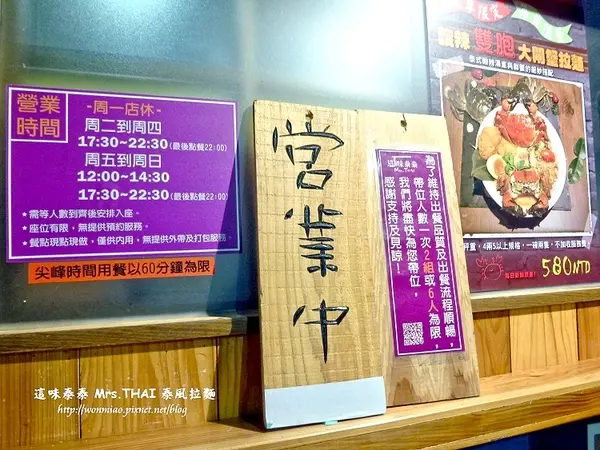 營業時間
-周一店休-
周二到周四
17:30~22:30(最後點餐22:00)
周五到周日
12:00~14:30
17:30~22:30(最後點餐22:00)
*需等人數到齊後安排入座。
*座位有限,無提供預約服務。
*餐點現點現做,僅供內用,無提供外帶及打包服務。
尖峰時間用餐以60分鐘為限
營業中
這味泰泰
Mrs.THAI
為了維持出餐品質及出餐流程順暢,
帶位人數一次2組或6人為限,
我們將盡快為您帶位,
感謝支持及見諒!
酸辣雙胞大閘蟹拉麵
580NTD
這味泰泰 Mrs.THAI 泰風拉麵
http://wonmiao.pixnet.net/blog